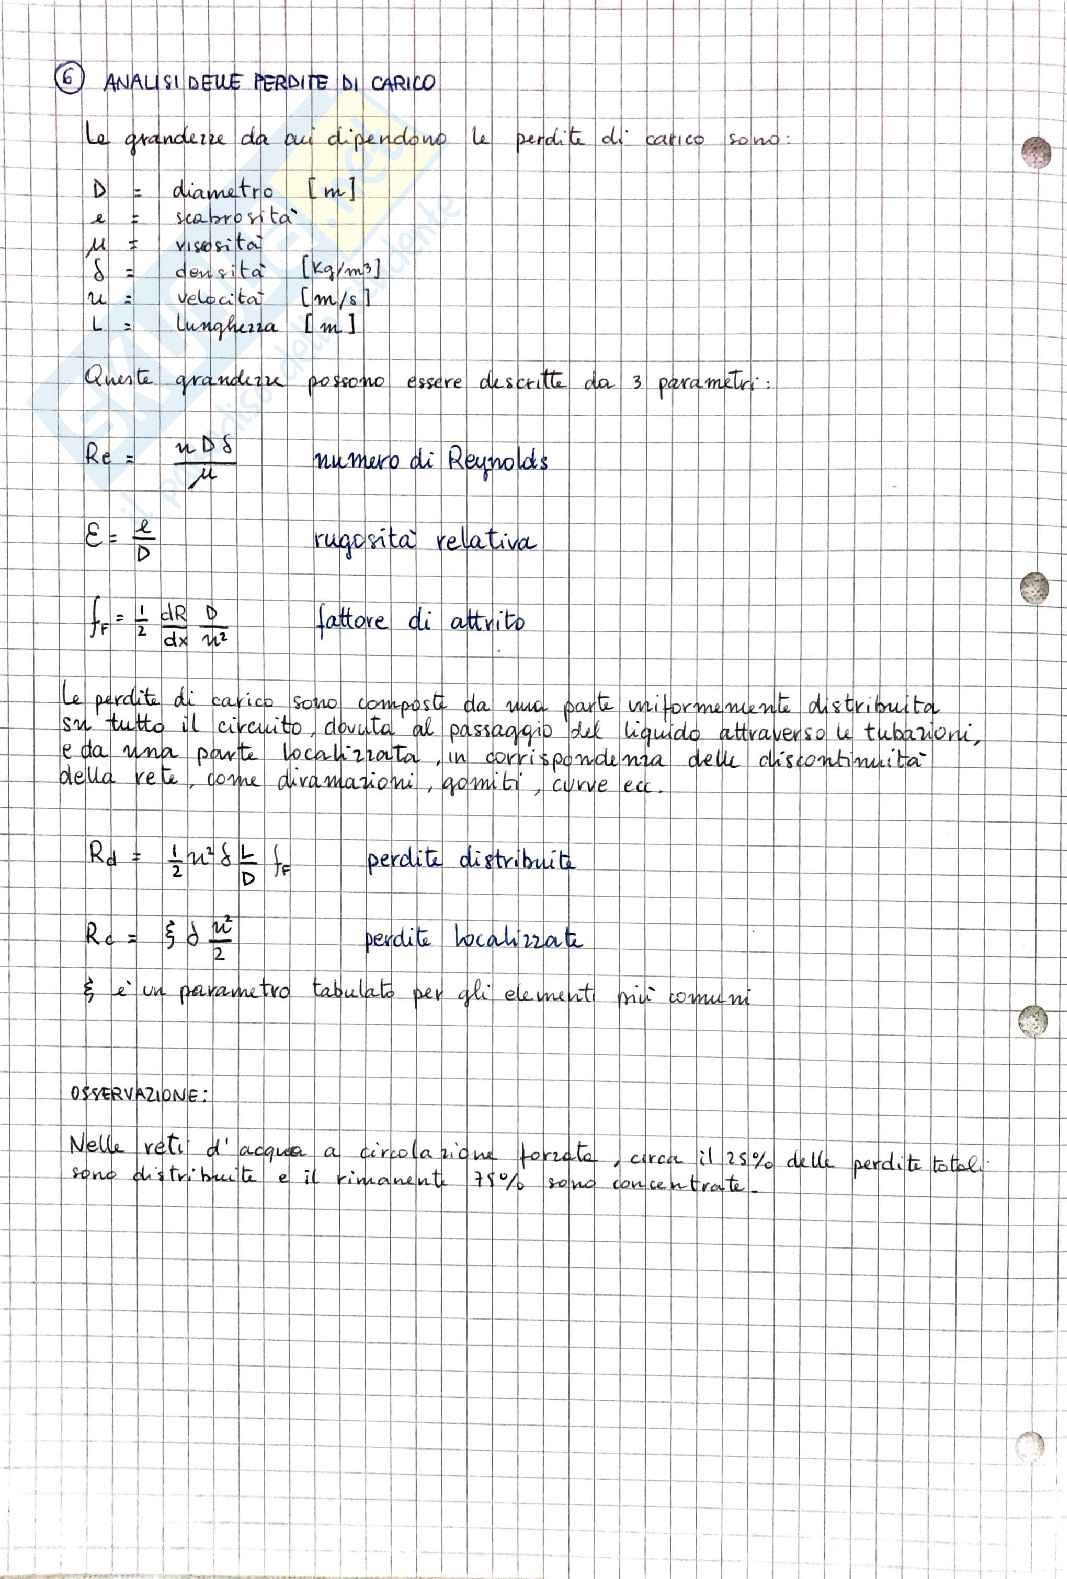 6 ANALISI DELLE PERDITE DI CARICO
Le grandezze da cui dipendono le perdite di carico sono:
D = diametro [m]
e = scabrosità
μ = viscosità
δ = densità [kg/m³]
u = velocità [m/s]
L = lunghezza [m]
Queste grandezze possono essere descritte da 3 parametri:
Re = uDδ/μ numero di Reynolds
ε = e/D rugosità relativa
f_F = 1/2 dR/dx D/u² fattore di attrito
Le perdite di carico sono composte da una parte uniformemente distribuita
su tutto il circuito, dovuta al passaggio del liquido attraverso le tubazioni,
e da una parte localizzata, in corrispondenza delle discontinuità
della rete, come diramazioni, gomiti, curve ecc.
R_d = 1/2 u² δ L/D f_F perdite distribuite
R_c = ξ δ u²/2 perdite localizzate
ξ è un parametro tabulato per gli elementi più comuni
OSSERVAZIONE:
Nelle reti d'acqua a circolazione forzata, circa il 25% delle perdite totali
sono distribuite e il rimanente 75% sono concentrate.